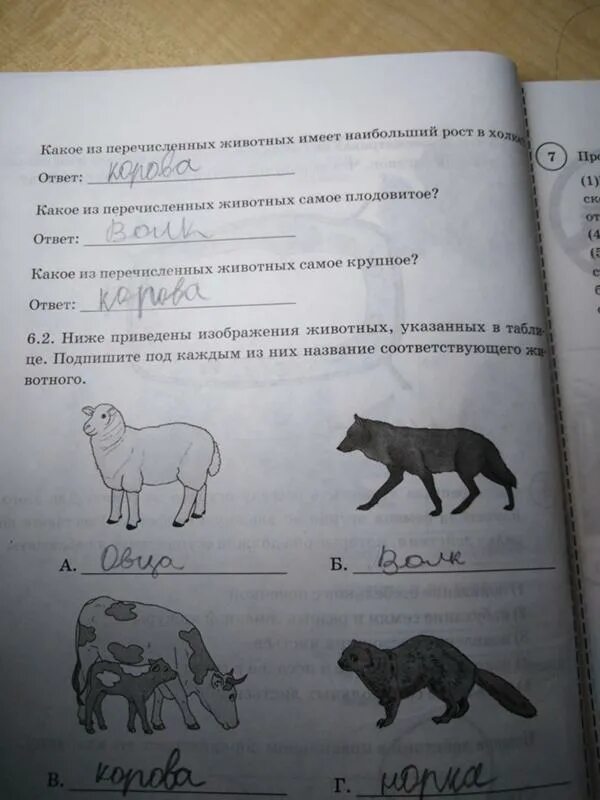 Какое из перечисленных животных имеет наибольший рост в холке
Ответ: корова
Какое из перечисленных животных самое плодовитое?
Ответ: Волк
Какое из перечисленных животных самое крупное?
Ответ: корова
6.2. Ниже приведены изображения животных, указанных в табли-
це. Подпишите под каждым из них название соответствующего жи-
вотного.
А. Овца
Б. Волк
В. корова
Г. норка
7
(1)
(4